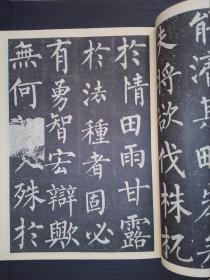 能濟其
夫將欲伐株杌
於情田雨甘露
於法種者固必
有勇智宏辯歟
無何殊於